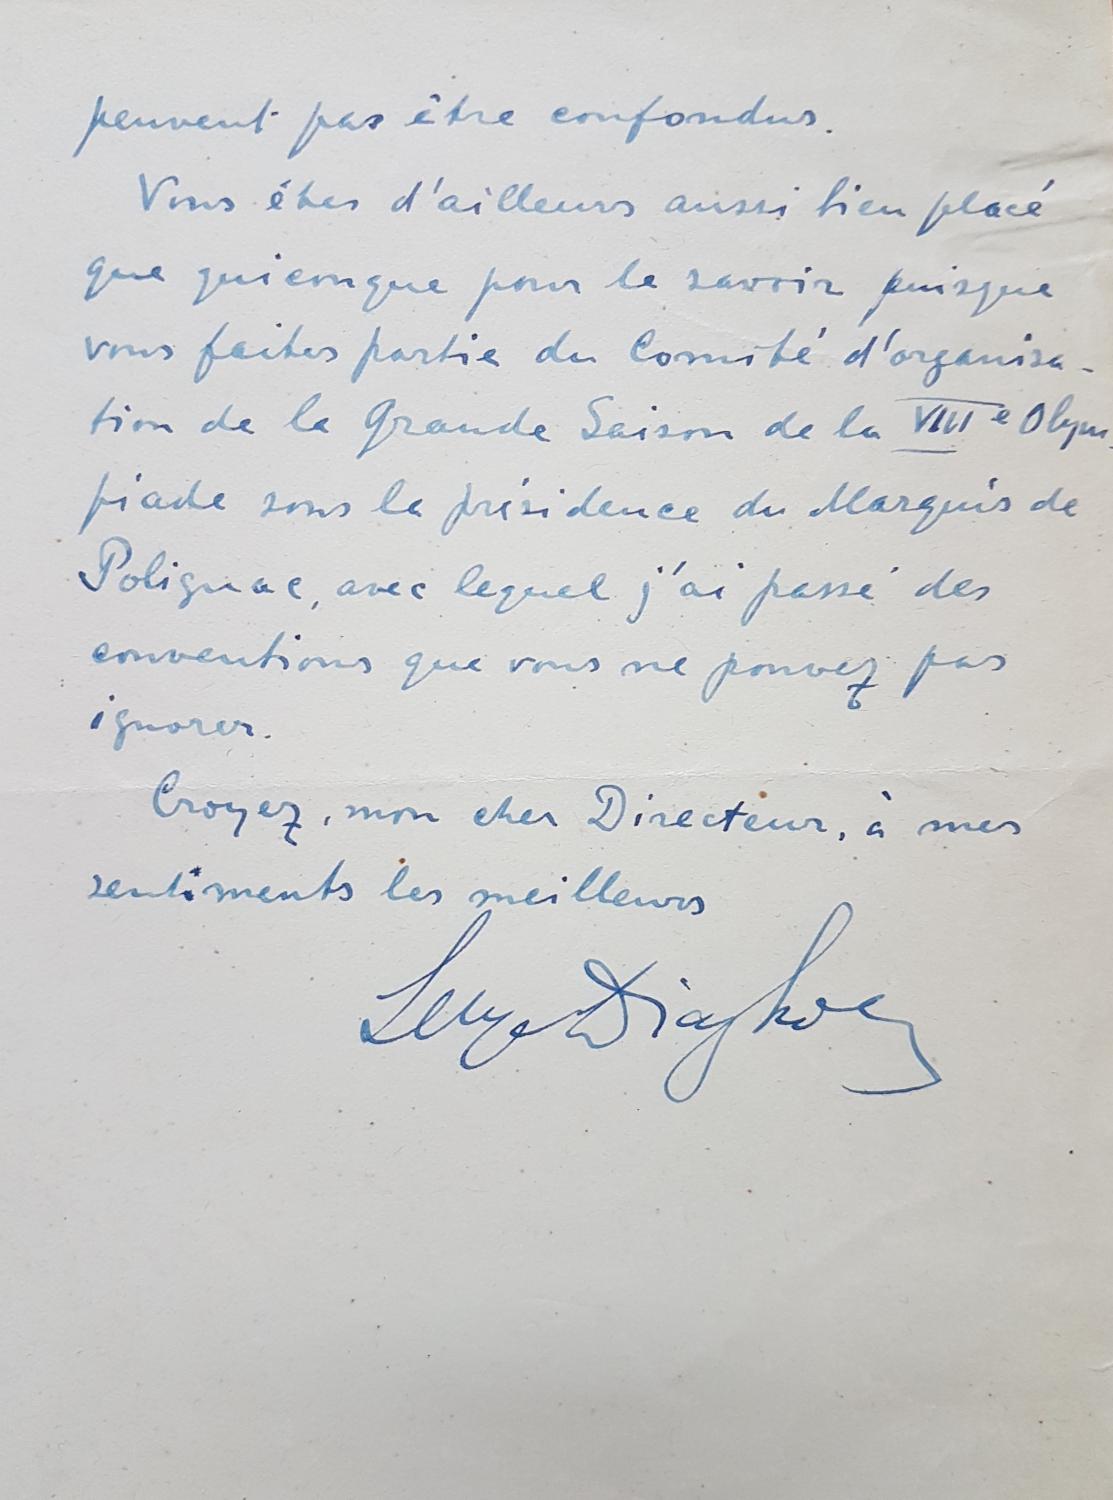 peuvent pas être confondus.
Vous êtes d'ailleurs aussi bien placé
que quiconque pour le savoir puisque
vous faites partie du Comité d'organisa-
tion de la Grande Saison de la VIIIe Olym-
piade sous la présidence du Marquis de
Polignac, avec lequel j'ai passé des
conventions que vous ne pouvez pas
ignorer.
Croyez, mon cher Directeur, à mes
sentiments les meilleurs
Serge Diaghilev